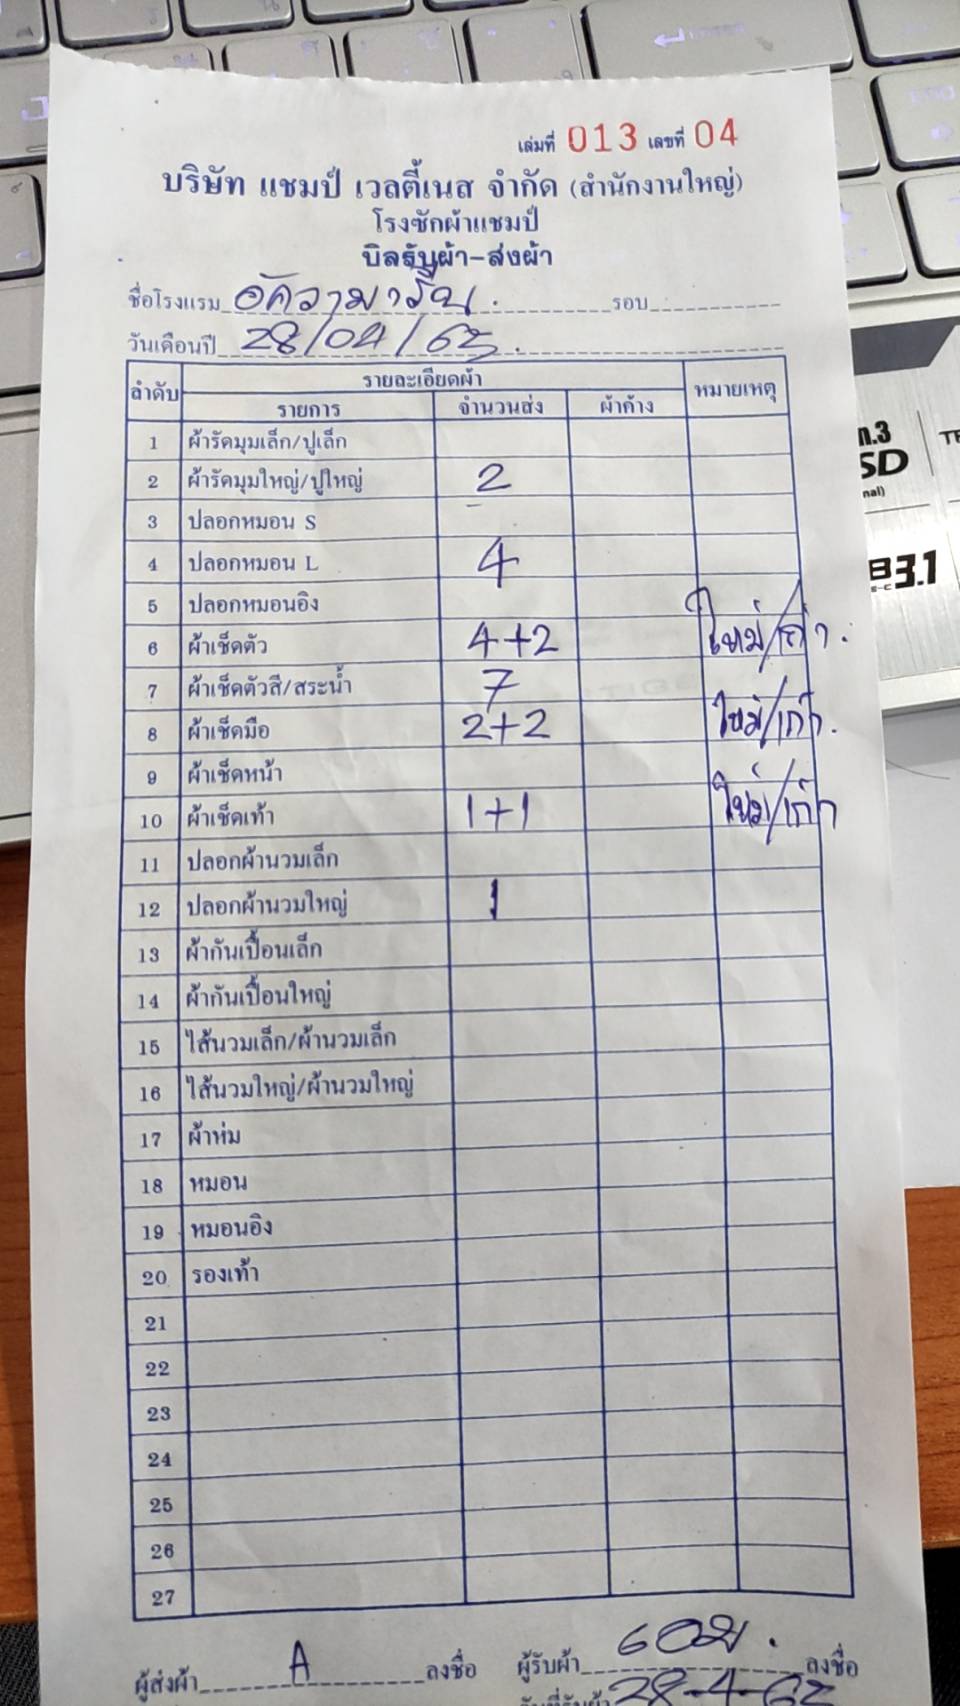 เล่มที่ 013 เลขที่ 04
บริษัท แชมป์ เวลตี้เนส จำกัด (สำนักงานใหญ่)
โรงซักผ้าแชมป์
บิลรับผ้า-ส่งผ้า
ชื่อโรงแรม อัความารีน. รอบ
วันเดือนปี 28/04/65.
ลำดับ รายละเอียดผ้า หมายเหตุ
รายการ จำนวนส่ง ผ้าค้าง
1 ผ้ารัดมุมเล็ก/ปูเล็ก
2 ผ้ารัดมุมใหญ่/ปูใหญ่ 2
3 ปลอกหมอน S
4 ปลอกหมอน L 4
5 ปลอกหมอนอิง
6 ผ้าเช็ดตัว 4+2 ใหม่/เก่า.
7 ผ้าเช็ดตัวสี/สระน้ำ 7
8 ผ้าเช็ดมือ 2+2 ใหม่/เก่า.
9 ผ้าเช็ดหน้า
10 ผ้าเช็ดเท้า 1+1 ใหม่/เก่า
11 ปลอกผ้านวมเล็ก
12 ปลอกผ้านวมใหญ่ 1
13 ผ้ากันเปื้อนเล็ก
14 ผ้ากันเปื้อนใหญ่
15 ไส้นวมเล็ก/ผ้านวมเล็ก
16 ไส้นวมใหญ่/ผ้านวมใหญ่
17 ผ้าห่ม
18 หมอน
19 หมอนอิง
20 รองเท้า
21
22
23
24
25
26
27
ผู้ส่งผ้า A ลงชื่อ ผู้รับผ้า ลงชื่อ
วันที่รับผ้า 28-4-65
B3.1